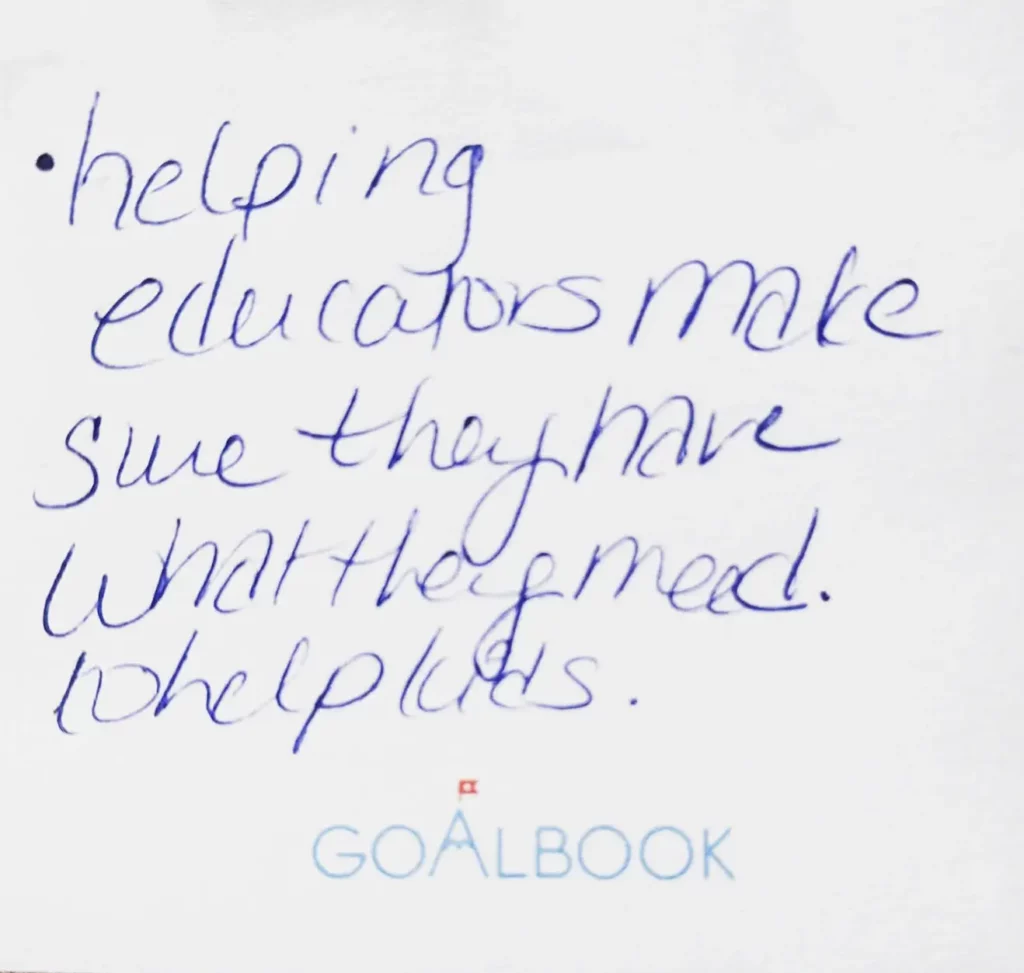 • helping
educators make
sure they have
what they need.
to help kids.
GOALBOOK